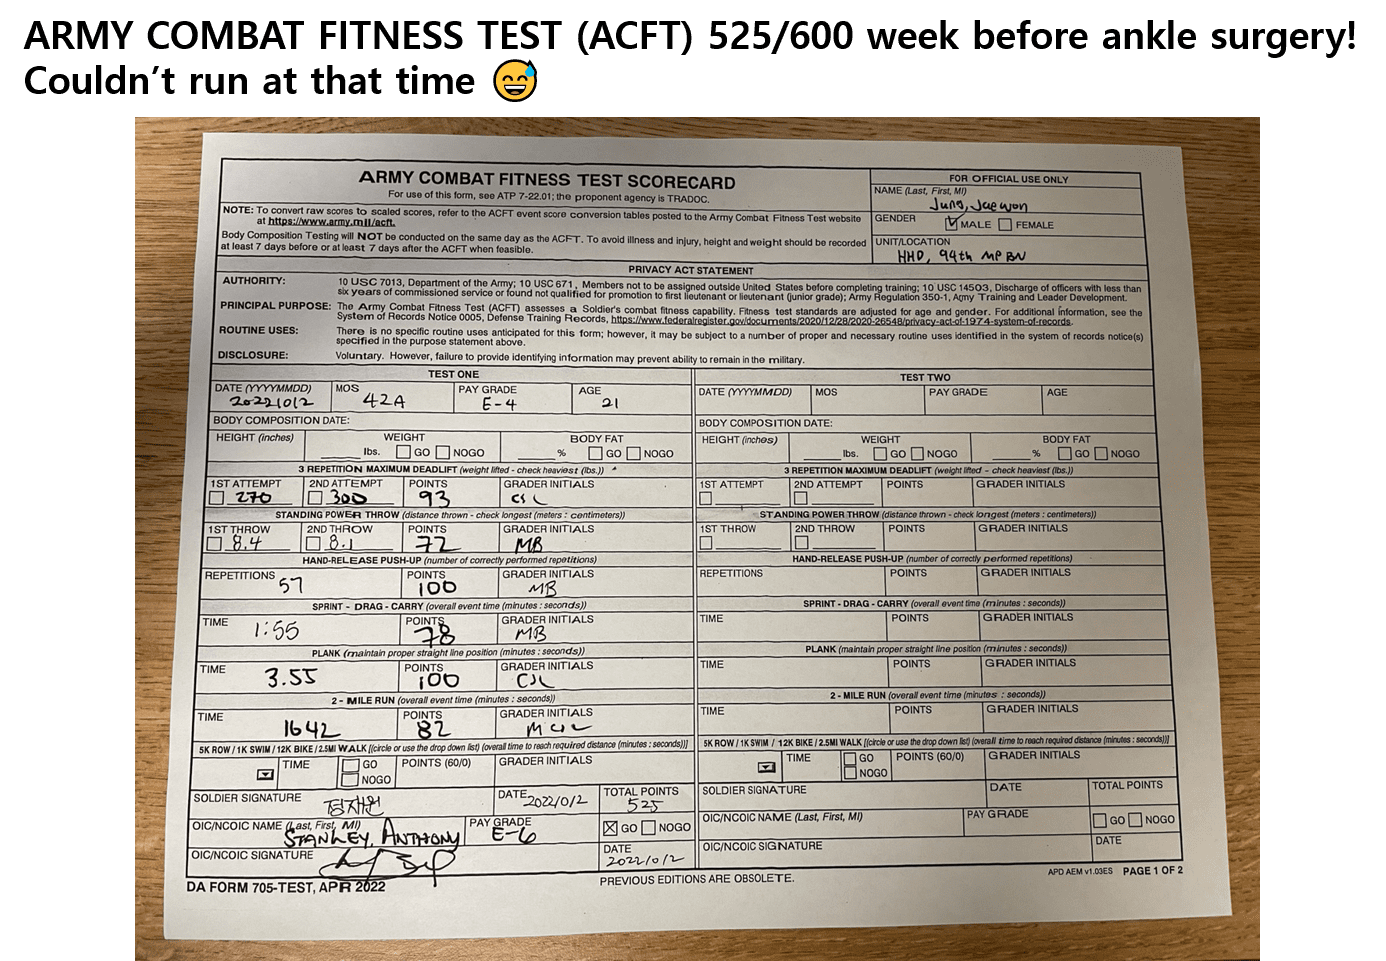 ARMY COMBAT FITNESS TEST (ACFT) 525/600 week before ankle surgery!
Couldn’t run at that time 😅
ARMY COMBAT FITNESS TEST SCORECARD
For use of this form, see ATP 7-22.01; the proponent agency is TRADOC.
FOR OFFICIAL USE ONLY
NAME (Last, First, MI)
Jung, Jaewon
NOTE: To convert raw scores to scaled scores, refer to the ACFT event score conversion tables posted to the Army Combat Fitness Test website
at https://www.army.mil/acft.
GENDER MALE FEMALE
Body Composition Testing will NOT be conducted on the same day as the ACFT. To avoid illness and injury, height and weight should be recorded
at least 7 days before or at least 7 days after the ACFT when feasible.
UNIT/LOCATION
HHD, 94th MP BN
PRIVACY ACT STATEMENT
AUTHORITY: 10 USC 7013, Department of the Army; 10 USC 671, Members not to be assigned outside United States before completing training; 10 USC 14503, Discharge of officers with less than
six years of commissioned service or found not qualified for promotion to first lieutenant or lieutenant (junior grade); Army Regulation 350-1, Army Training and Leader Development.
PRINCIPAL PURPOSE: The Army Combat Fitness Test (ACFT) assesses a Soldier's combat fitness capability. Fitness test standards are adjusted for age and gender. For additional information, see the
System of Records Notice 0005, Defense Training Records, https://www.federalregister.gov/documents/2020/12/28/2020-26548/privacy-act-of-1974-system-of-records.
ROUTINE USES: There is no specific routine uses anticipated for this form; however, it may be subject to a number of proper and necessary routine uses identified in the system of records notice(s)
specified in the purpose statement above.
DISCLOSURE: Voluntary. However, failure to provide identifying information may prevent ability to remain in the military.
TEST ONE
DATE (YYYYMMDD) MOS PAY GRADE AGE
20221012 42A E-4 21
BODY COMPOSITION DATE:
HEIGHT (inches) WEIGHT BODY FAT
lbs. GO NOGO % GO NOGO
3 REPETITION MAXIMUM DEADLIFT (weight lifted - check heaviest (lbs.))
1ST ATTEMPT 2ND ATTEMPT POINTS GRADER INITIALS
270 300 93 CJL
STANDING POWER THROW (distance thrown - check longest (meters : centimeters))
1ST THROW 2ND THROW POINTS GRADER INITIALS
8.4 8.1 72 MB
HAND-RELEASE PUSH-UP (number of correctly performed repetitions)
REPETITIONS POINTS GRADER INITIALS
57 100 MB
SPRINT - DRAG - CARRY (overall event time (minutes : seconds))
TIME POINTS GRADER INITIALS
1:55 78 MB
PLANK (maintain proper straight line position (minutes : seconds))
TIME POINTS GRADER INITIALS
3.55 100 CJL
2 - MILE RUN (overall event time (minutes : seconds))
TIME POINTS GRADER INITIALS
1642 82
5K ROW / 1K SWIM / 12K BIKE / 2.5MI WALK [(circle or use the drop down list) (overall time to reach required distance (minutes : seconds))]
TIME GO NOGO POINTS (60/0) GRADER INITIALS
SOLDIER SIGNATURE DATE TOTAL POINTS
정재원 20221012 525
OIC/NCOIC NAME (Last, First, MI) PAY GRADE GO NOGO
STANLEY, ANTHONY E-6
OIC/NCOIC SIGNATURE DATE
20221012
TEST TWO
DATE (YYYYMMDD) MOS PAY GRADE AGE
BODY COMPOSITION DATE:
HEIGHT (inches) WEIGHT BODY FAT
lbs. GO NOGO % GO NOGO
3 REPETITION MAXIMUM DEADLIFT (weight lifted - check heaviest (lbs.))
1ST ATTEMPT 2ND ATTEMPT POINTS GRADER INITIALS
STANDING POWER THROW (distance thrown - check longest (meters : centimeters))
1ST THROW 2ND THROW POINTS GRADER INITIALS
HAND-RELEASE PUSH-UP (number of correctly performed repetitions)
REPETITIONS POINTS GRADER INITIALS
SPRINT - DRAG - CARRY (overall event time (minutes : seconds))
TIME POINTS GRADER INITIALS
PLANK (maintain proper straight line position (minutes : seconds))
TIME POINTS GRADER INITIALS
2 - MILE RUN (overall event time (minutes : seconds))
TIME POINTS GRADER INITIALS
5K ROW / 1K SWIM / 12K BIKE / 2.5MI WALK [(circle or use the drop down list) (overall time to reach required distance (minutes : seconds))]
TIME GO NOGO POINTS (60/0) GRADER INITIALS
SOLDIER SIGNATURE DATE TOTAL POINTS
OIC/NCOIC NAME (Last, First, MI) PAY GRADE GO NOGO
OIC/NCOIC SIGNATURE DATE
DA FORM 705-TEST, APR 2022 PREVIOUS EDITIONS ARE OBSOLETE. APD AEM v1.03ES PAGE 1 OF 2